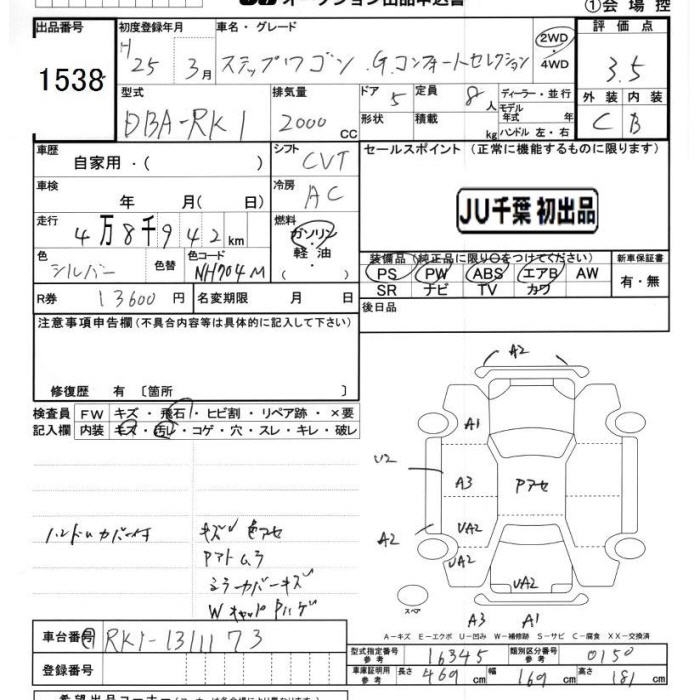 オークション出品申込書
①会場控
出品番号
1538
初度登録年月
H25 3月
車名・グレード
ステップワゴン .G.コンフォートセレクション
2WD
・
4WD
評価点
3.5
外装 内装
C B
型式
DBA-RK1
排気量
2000 CC
ドア 5
形状
定員 8人
積載 kg
ディーラー・並行
モデル
年式 年
ハンドル 左・右
車歴
自家用・( )
シフト CVT
車検
年 月( 日)
冷房 AC
走行
4万8千942km
燃料
ガソリン
・
軽油
・
( )
色
シルバー
色替
色コード
NH704M
R券 13600円
名変期限 月 日
セールスポイント (正常に機能するものに限ります)
JU千葉 初出品
装備品(純正品に限り○をつけてください)
PS PW ABS エアB AW
SR ナビ TV カワ
新車保証書
有・無
後日品
注意事項申告欄(不具合内容等は具体的に記入して下さい)
修復歴 有〔箇所 〕
検査員
記入欄
FW キズ・飛石・ヒビ割・リペア跡・×要
内装 キズ・汚レ・コゲ・穴・スレ・キレ・破レ
ハンドルカバー付
Pアトムラ
ミラーカバーキズ
A2
A1
U2
A3
Pアセ
A2
UA2
UA2
UA2
スペア
A3 A1
A-キズ E-エクボ U-凹み W-補修跡 S-サビ C-腐食 XX-交換済
車台番号 RK1-1311173
登録番号
型式指定番号
参考
16345
類別区分番号
参考
0150
車庫証明用
参考
長さ 469cm 幅 169cm 高さ 181cm
希望出品コーナー